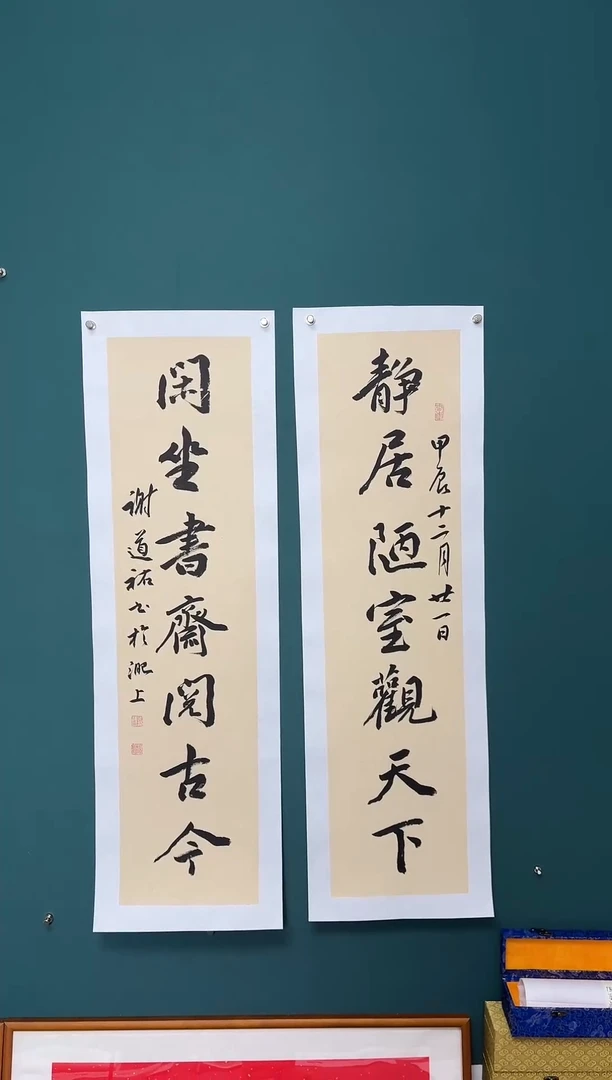 甲辰十二月廿一日
静居陋室觀天下
閑坐書齋閱古今
謝道祐书於淝上